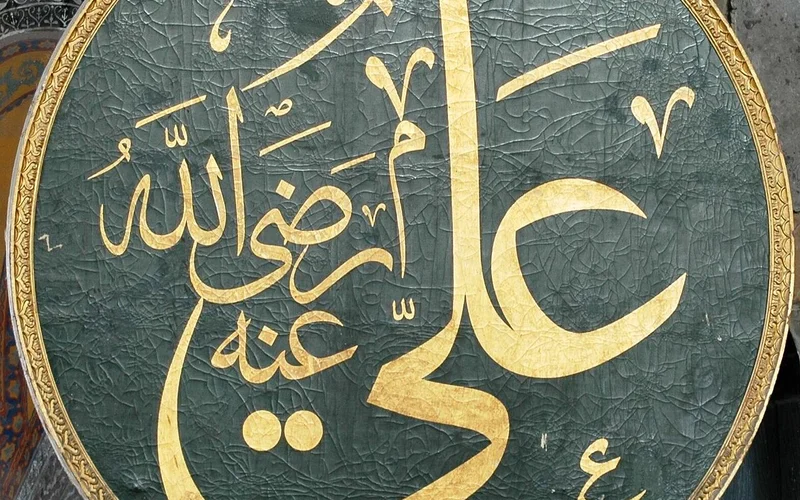 علي
رضى الله
عنه